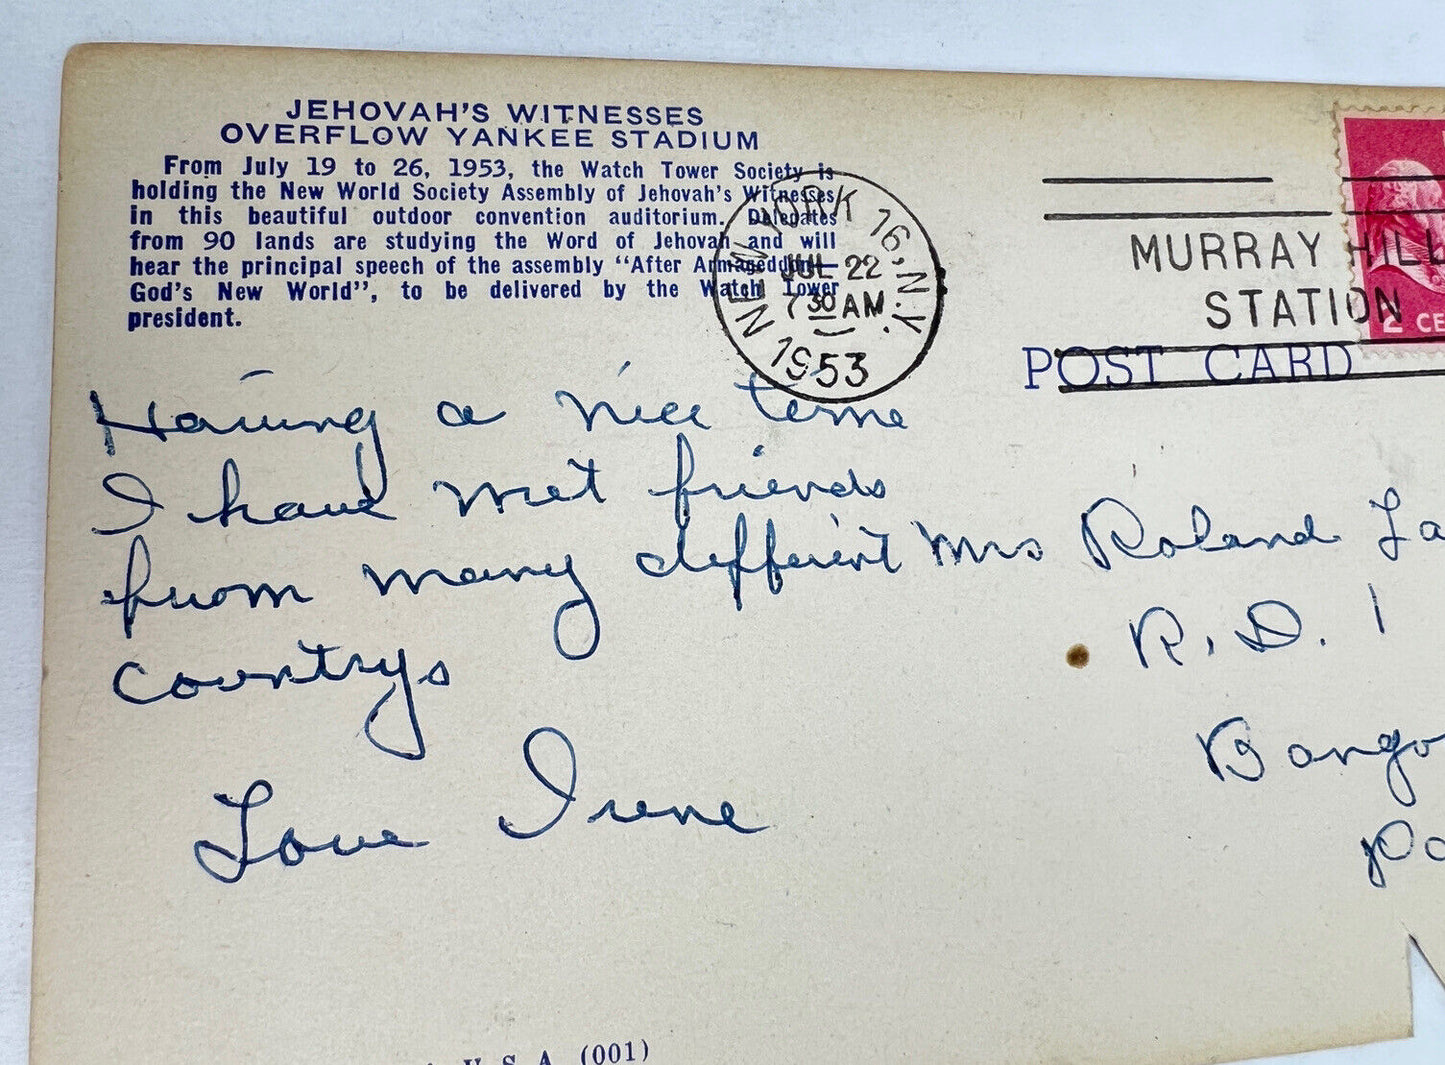 JEHOVAH'S WITNESSES
OVERFLOW YANKEE STADIUM
From July 19 to 26, 1953, the Watch Tower Society is
holding the New World Society Assembly of Jehovah's Witnesses
in this beautiful outdoor convention auditorium. Delegates
from 90 lands are studying the Word of Jehovah and will
hear the principal speech of the assembly "After Armageddon—
God's New World", to be delivered by the Watch Tower
president.
NEW YORK 16, N.Y.
JUL 22
7 30 AM
1953
MURRAY HILL
STATION
2 CE
POST CARD
Having a nice teme
I have met friends
from many different
countrys
Love Irene
Mrs Roland La
R. D. 1
Bango
Pa
U.S.A. (001)